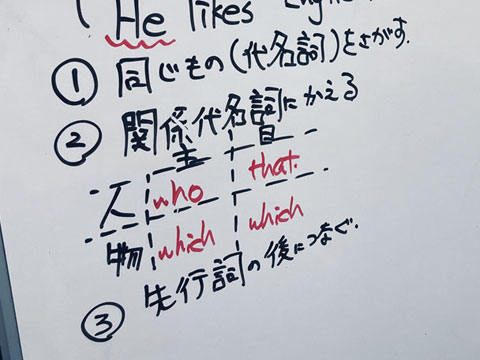 ( He likes
① 同じもの(代名詞)をさがす.
② 関係代名詞にかえる
主 目
人 who that
物 which which
③ 先行詞の後につなぐ.